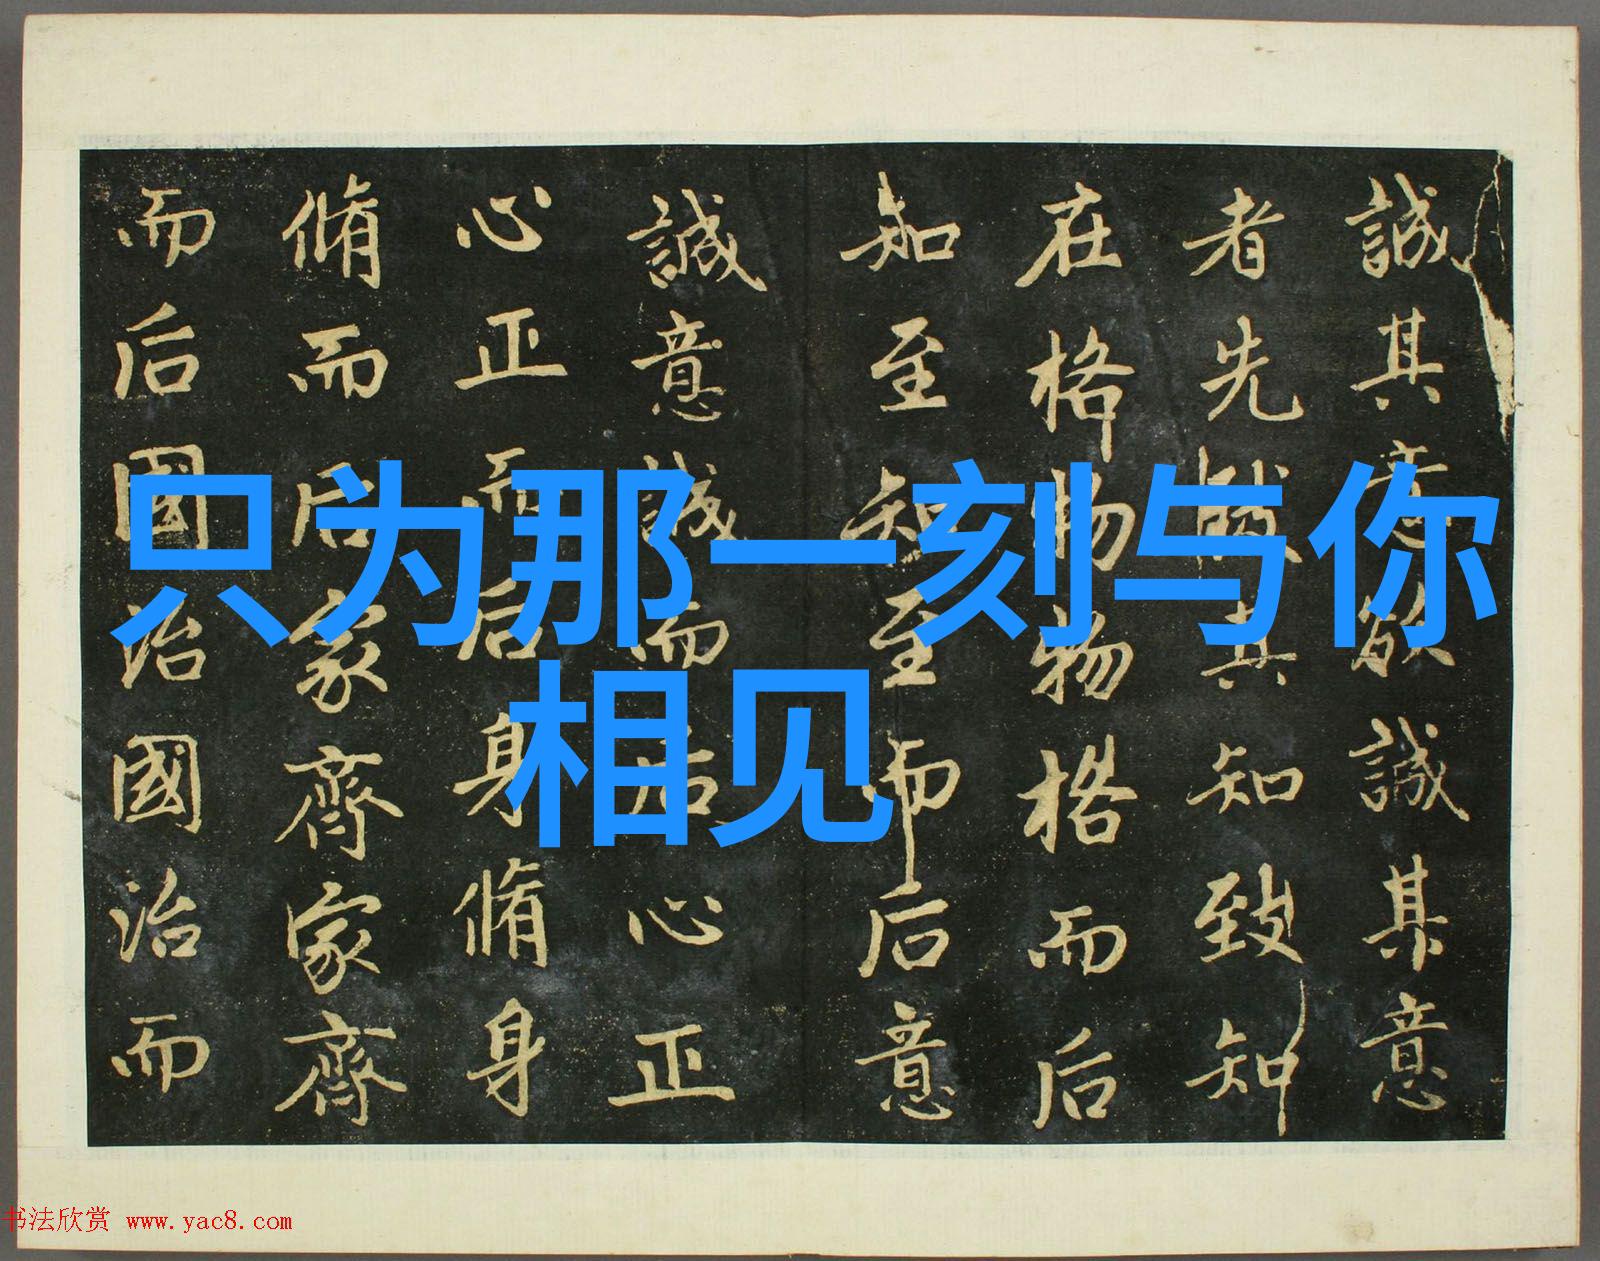 只为那一刻与你
相见
誠其意欲誠其意
者先致其知致知
在格物物格而后
知至知至而后意
誠意誠而后心正
心正而后身脩身
脩而后家齊家齊
而后國治國治而
书法欣赏 www.yac8.com